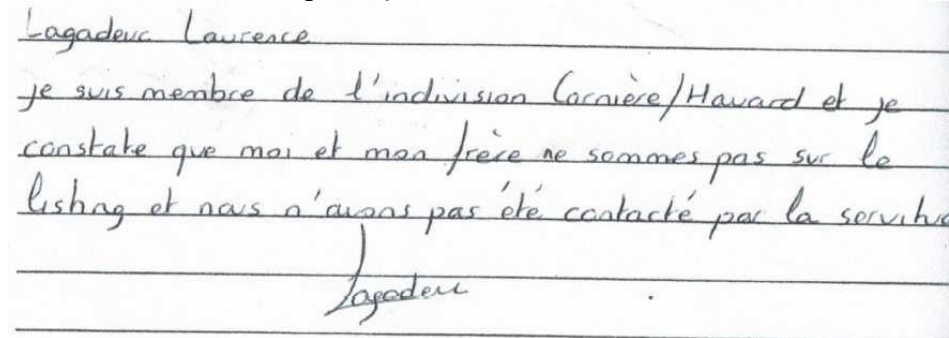 Lagadeuc Laurence
je suis membre de l'indivision Cornière/Havard et je
constate que moi et mon frère ne sommes pas sur le
listing et nous n'avons pas été contacté par la servitude
Lagadeuc